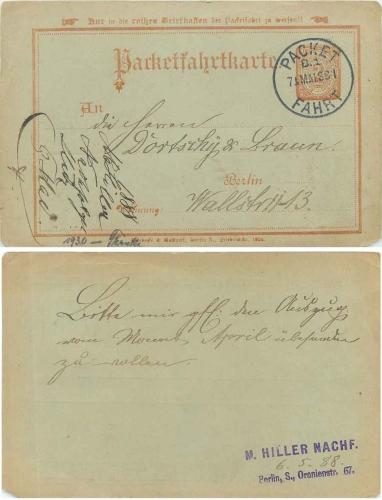 Nur in die rothen Briefkasten der Packetfahrt zu werfen!
Packetfahrtkarte
PACKET
B.1
7A MAI 88-1
FAHRT
An
die Herren
Dortschy & Braun.
Berlin
Wallstr 13.
Wohnung:
1930
Bitte mir gfl. den Auszug
vom Monat April übersenden
zu wollen.
M. HILLER NACHF.
6. 5. 88.
Berlin, S., Oranienstr. 67.